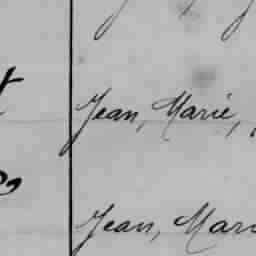 Jean, Marie,
Jean, Mari